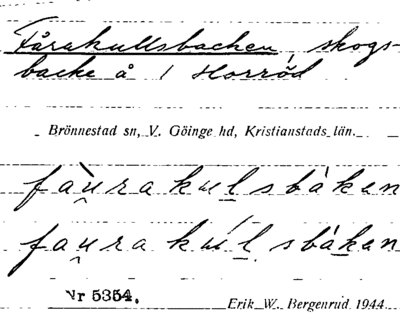 Fårakullsbacken, skogs-
backe å 1 Horröd
Brönnestad sn, V. Göinge hd, Kristianstads län.
fàu̯rakul̲sbák̲an
fau̯rakúl̲sbák̲an
Nr 5354.
Erik W. Bergenrud 1944